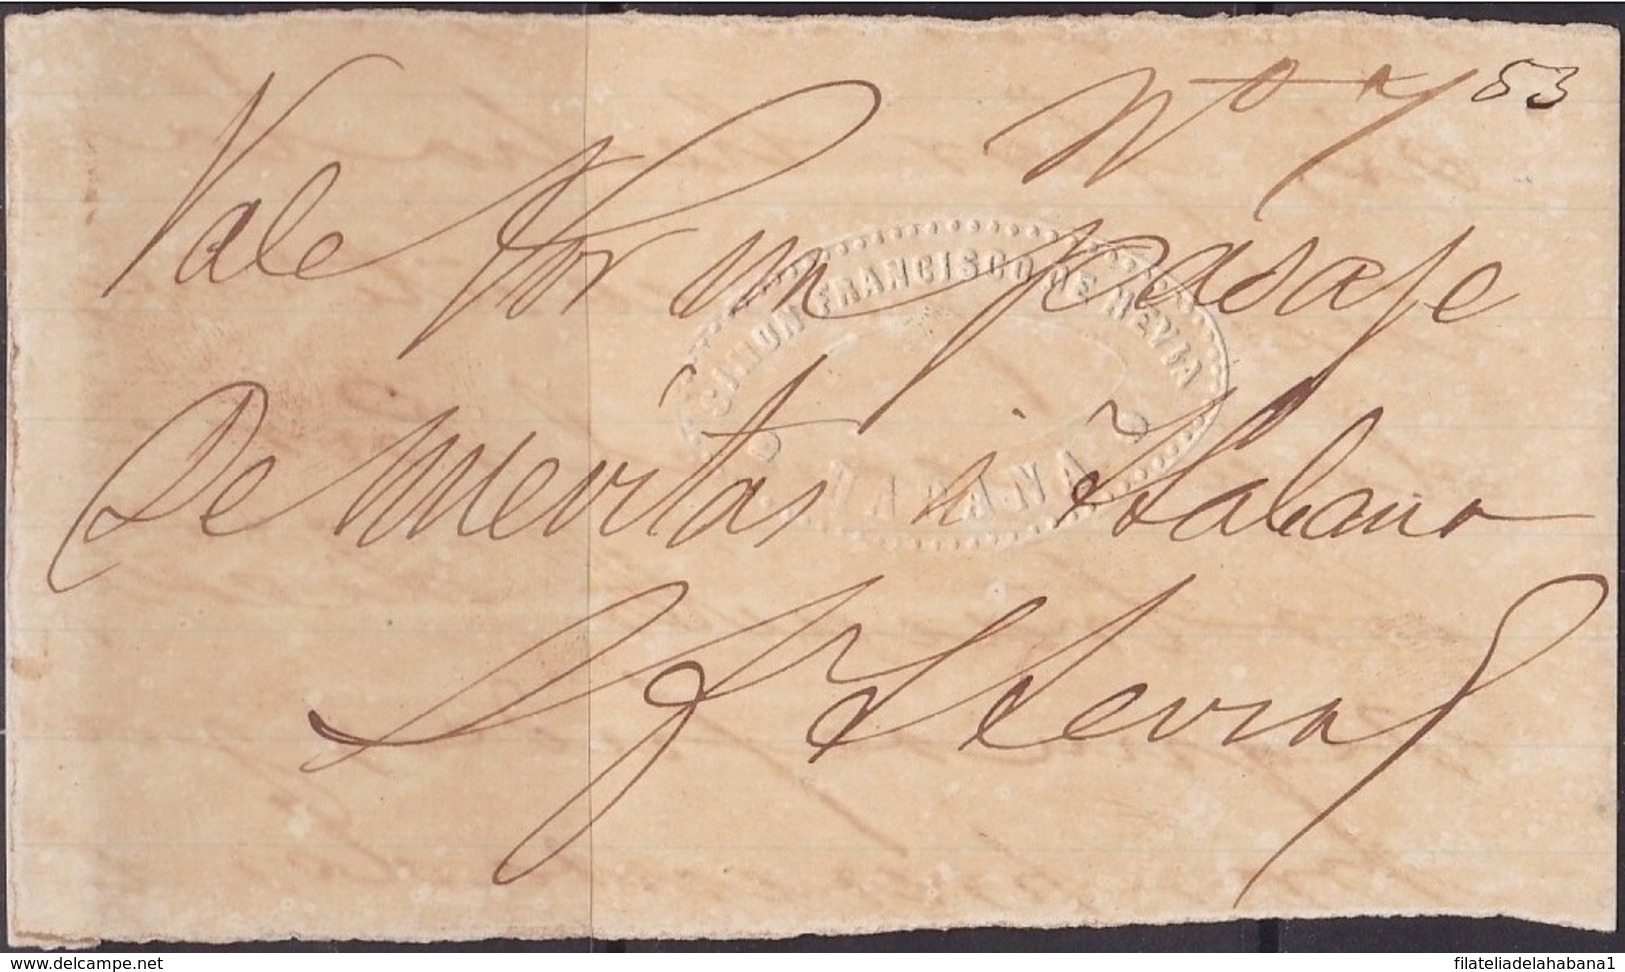 Nº 7 53
Vale por un pasaje
SIMON FRANCISCO DE MEVIA
HABANA
De Nuevitas á Habana
www.delcampe.net
filateliadelahabana1